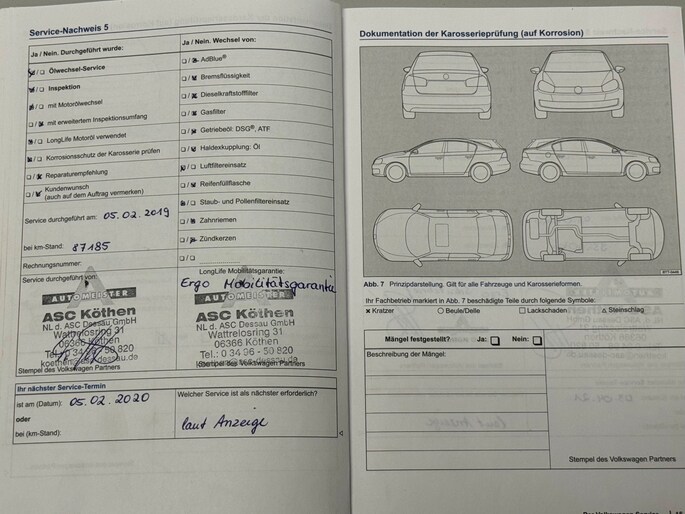 Service-Nachweis 5
Ja / Nein. Durchgeführt wurde:
Ölwechsel-Service
Inspektion
mit Motorölwechsel
mit erweitertem Inspektionsumfang
LongLife Motoröl verwendet
Korrosionsschutz der Karosserie prüfen
Reparaturempfehlung
Kundenwunsch
(auch auf dem Auftrag vermerken)
Service durchgeführt am: 05.02.2019
bei km-Stand: 87185
Rechnungsnummer:
Service durchgeführt von:
AUTOMEISTER
ASC Köthen
NL d. ASC Dessau GmbH
Wattrelosring 31
06366 Köthen
Stempel des Volkswagen Partners
Ja / Nein. Wechsel von:
AdBlue®
Bremsflüssigkeit
Dieselkraftstofffilter
Gasfilter
Getriebeöl: DSG®, ATF
Haldexkupplung: Öl
Luftfiltereinsatz
Reifenfüllflasche
Staub- und Pollenfiltereinsatz
Zahnriemen
Zündkerzen
LongLife Mobilitätsgarantie:
Ergo Mobilitätsgarantie
AUTOMEISTER
ASC Köthen
NL d. ASC Dessau GmbH
Wattrelosring 31
06366 Köthen
Tel.: 0 34 96 - 50 820
Stempel des Volkswagen Partners
Ihr nächster Service-Termin
ist am (Datum): 05.02.2020
oder
bei (km-Stand):
Welcher Service ist als nächster erforderlich?
laut Anzeige
Dokumentation der Karosserieprüfung (auf Korrosion)
Abb. 7 Prinzipdarstellung. Gilt für alle Fahrzeuge und Karosserieformen.
Ihr Fachbetrieb markiert in Abb. 7 beschädigte Teile durch folgende Symbole:
× Kratzer ○ Beule/Delle □ Lackschaden △ Steinschlag
Mängel festgestellt? Ja: □ Nein: □
Beschreibung der Mängel:
Stempel des Volkswagen Partners